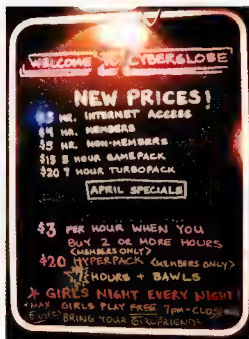 WELCOME TO CYBERGLOBE
NEW PRICES!
$3 HR. INTERNET ACCESS
$4 HR. MEMBERS
$5 HR. NON-MEMBERS
$15 5 HOUR GAMEPACK
$20 7 HOUR TURBOPACK
APRIL SPECIALS
$3 PER HOUR WHEN YOU
BUY 2 OR MORE HOURS
(MEMBERS ONLY)
$20 HYPERPACK (MEMBERS ONLY)
HOURS + BAWLS
* GIRLS NIGHT EVERY NIGHT!
*MAX GIRLS PLAY FREE 7pm-CLOSE
BRING YOUR GIRLFRIENDS